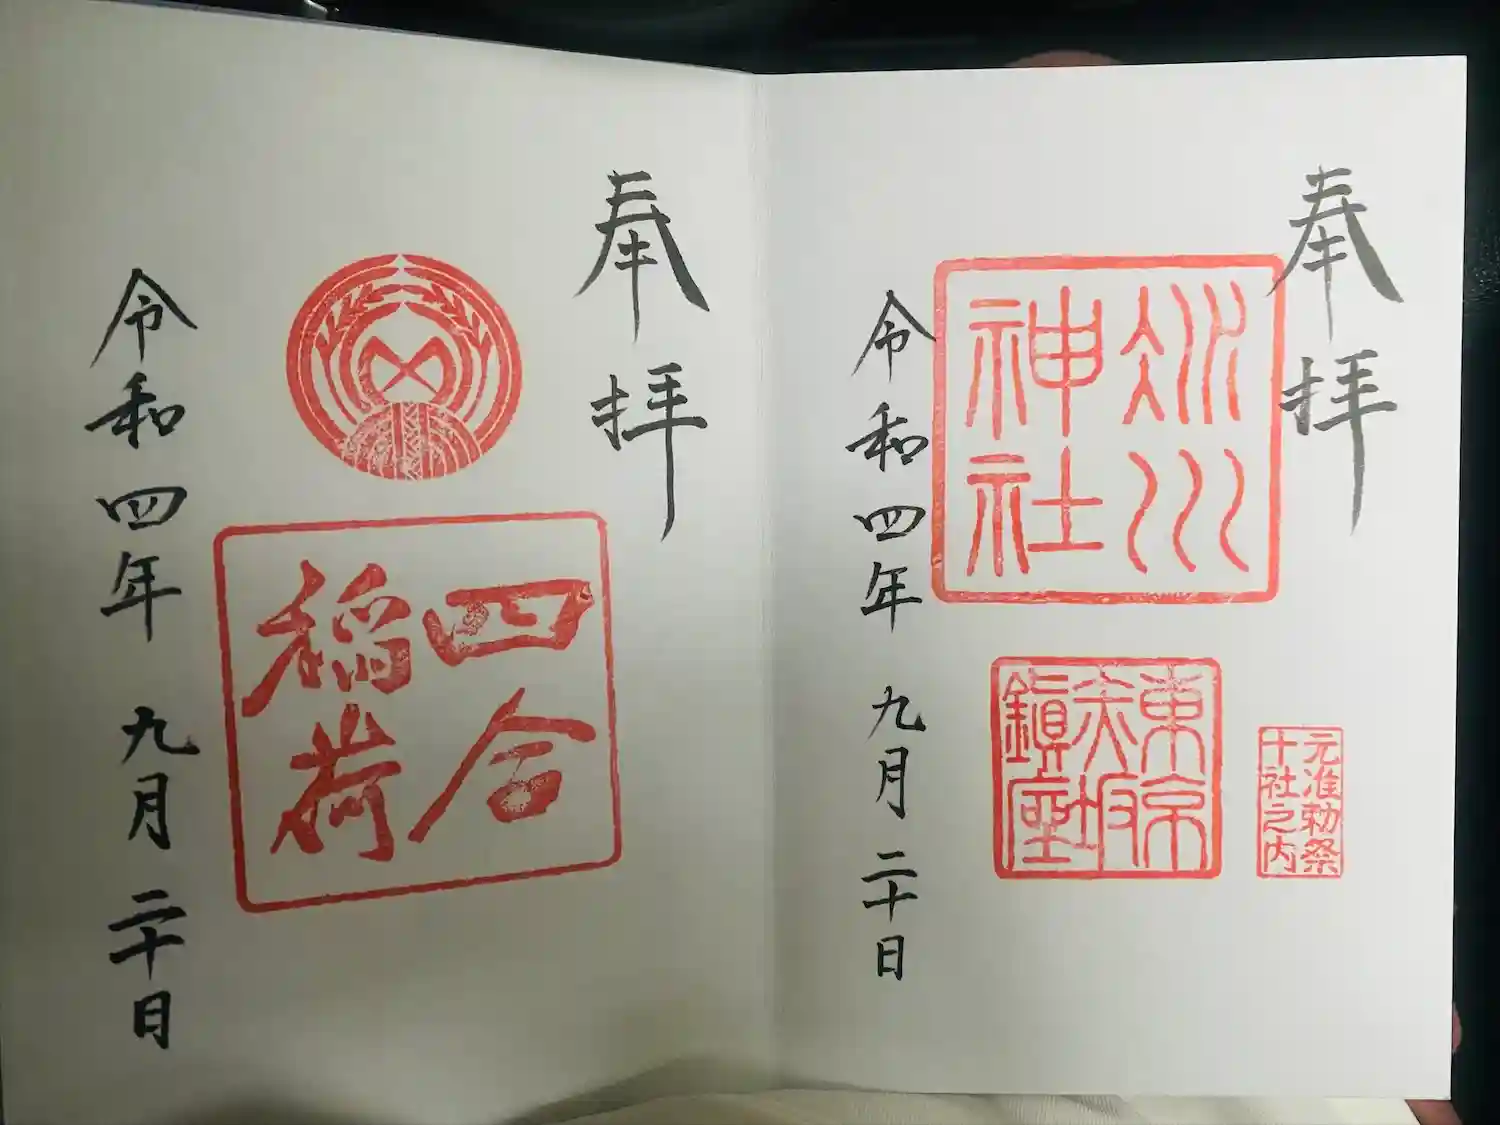 奉拝
氷川
神社
元准勅祭
十社之内
東京
赤坂
鎭座
令和四年 九月 二十日
奉拝
四合
稲荷
令和四年 九月 二十日